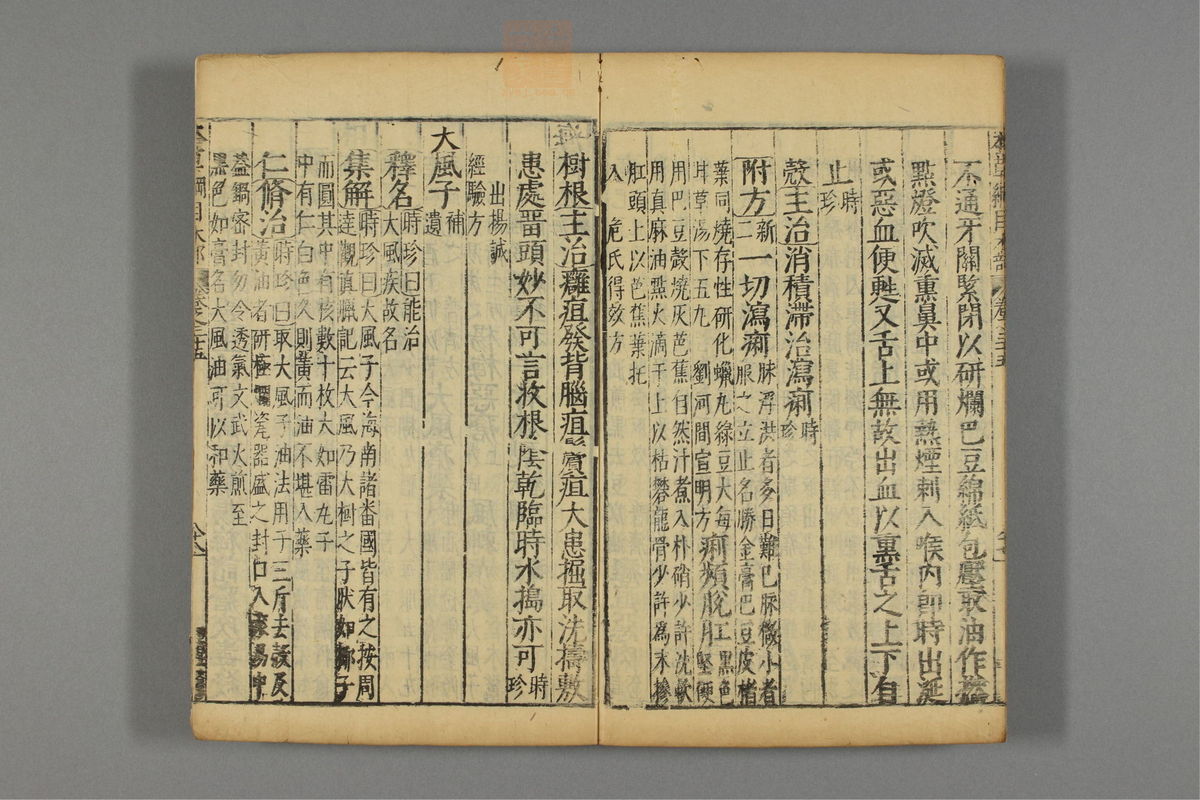 不通牙關緊閉以研爛巴豆綿紙包壓取油作撚
點燈吹滅熏鼻中或用熱煙刺入喉內即時出涎
或惡血便甦又舌上無故出血以熏舌之上下自
止時珍
殼主治消積滯治瀉痢時珍
附方新二一切瀉痢脉浮洪者多日難已脉微小者
服之立止名勝金膏巴豆皮楮
葉同燒存性研化蠟丸綠豆大每
甘草湯下五丸 劉河間宣明方
痢頻脫肛黑色堅硬
用巴豆殼燒灰芭蕉自然汁煮入朴硝少許洗軟
用真麻油點火滴于上以枯礬龍骨少許為末摻
肛頭上以芭蕉葉托
入 危氏得效方
樹根主治癰疽發背腦疽鬢疽大患掘取洗擣敷
患處畱頭妙不可言收根陰乾臨時水搗亦可時珍
出楊誠
經驗方
大風子補遺
釋名時珍曰能治
大風疾故名
集解時珍曰大風子今海南諸番國皆有之按周
達觀真臘記云大風乃大樹之子狀如椰子
而圓其中有核數十枚大如雷丸子
中有仁白色久則黃而油不堪入藥
仁脩治時珍曰取大風子油法用子三斤去殼及
黃油者研極爛瓷器盛之封口入滾湯中
蓋鍋密封勿令透氣文武火煎至
黑色如膏名大風油可以和藥